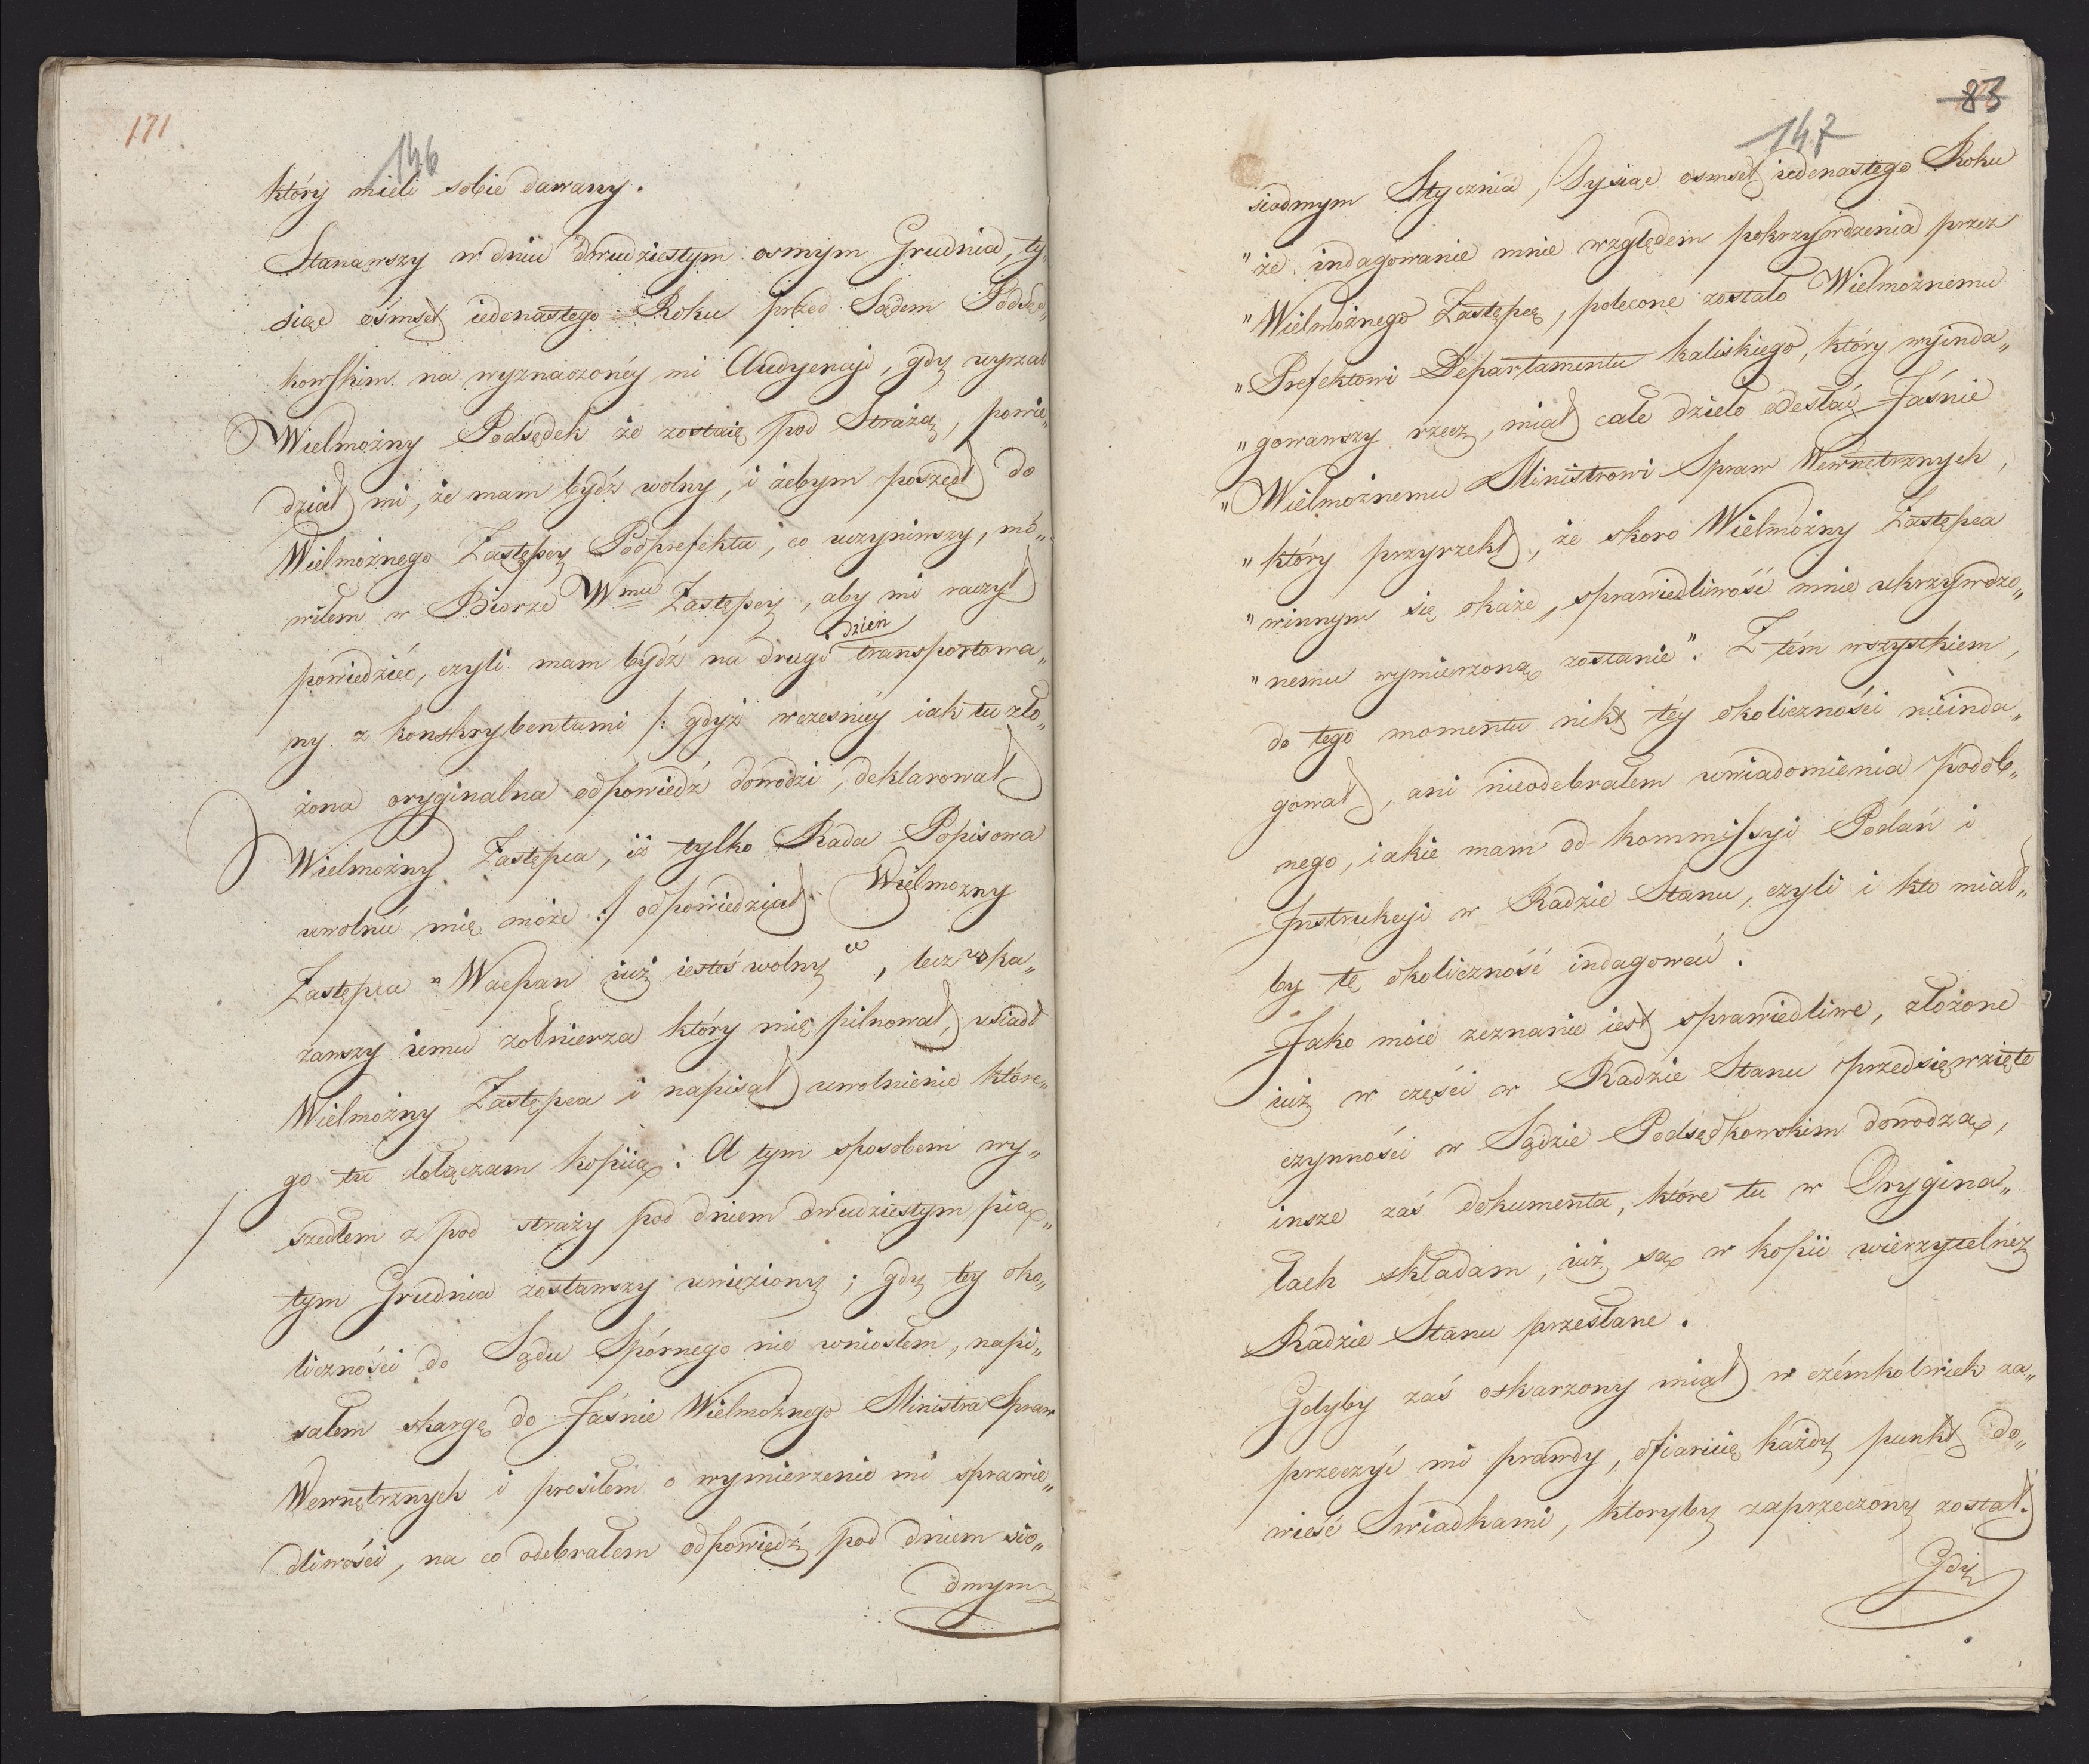 171
146
który mieli sobie dawany.
Stanąwszy w dniu dwudziestym osmym Grudnia, ty„
siąc óśmset iedenastego Roku przed Sądem Podsęd„
kowskim na wyznaczonéy mi Audyencyi, gdy uyrzał
Wielmożny Podsędek że zostaię pod Strażą, powie„
dział mi, że mam bydź wolny, i żebym poszedł do
Wielmożnego Zastępcy Podprefekta, co uczyniwszy, mó„
wiłem w Biorze Wmu Zastępcy, aby mi raczył
powiedzieć, czyli mam bydź na drugi dzień transportowa„
ny z konskrybentami /: gdyż wcześniéy iak tu zło„
żona oryginalna odpowiedź dowodzi, deklarował
Wielmożny Zastępca, iż tylko Rada Popisowa
uwolnić mię może :/ odpowiedział Wielmożny
Zastępca „Wacpan iuż iesteś wolny“, lecz wska„
zawszy iemu żołnierza który mię pilnował, usiadł
Wielmożny Zastępca i napisał uwolnienie które„
go tu dołączam kopiią: A tym sposobem wy„
szedłem z pod straży pod dniem dwudziestym pią„
tym Grudnia zostawszy uwięziony; gdy tey oko„
liczności do Sądu Spórnego nie wniosłem, napi„
sałem skargę do Jaśnie Wielmożnego Ministra Spraw
Wewnętrznych i prosiłem o wymierzenie mi sprawie„
dliwości, na co odebrałem odpowiedź pod dniem sió„
dmym
83
147
siodmym Stycznia, Tysiąc osmset iedenastego Roku
„że indagowanie mnie względem pokrzywdzenia przez
„Wielmożnego Zastępcę, polecone zostało Wielmożnemu
„Prefektowi Departamentu kaliskiego, który wyinda„
„gowawszy rzecz, miał całe dzieło odesłać Jaśnie
„Wielmożnemu Ministrowi Spraw Wewnętrznych,
„który przyrzekł, że skoro Wielmożny Zastępca
„winnym się okaże, sprawiedliwość mnie ukrzywdzo„
„nemu wymierzoną zostanie“. Z tém wszystkiem,
do tego momentu nikt téy okoliczności nieinda„
gował, ani nieodebrałem uwiadomienia podob„
nego, iakie mam od kommissyi Podań i
Instrukcyi w Radzie Stanu, czyli i kto miał„
by tę okoliczność indagować.
Jako moie zeznanie iest sprawiedliwe, złożone
iuż w części w Radzie Stanu przedsięwzięte
czynności w Sądzie Podsędkowskim dowodzą,
insze zaś dokumenta, które tu w Orygina„
łach składam, iuż są w kopii wierzytelnéy
Radzie Stanu przesłane.
Gdyby zaś oskarzony miał w czémkolwiek za„
przeczyć mi prawdy, ofiaruię każdy punkt do„
wieść Swiadkami, ktoryby zaprzeczony został.
Gdy